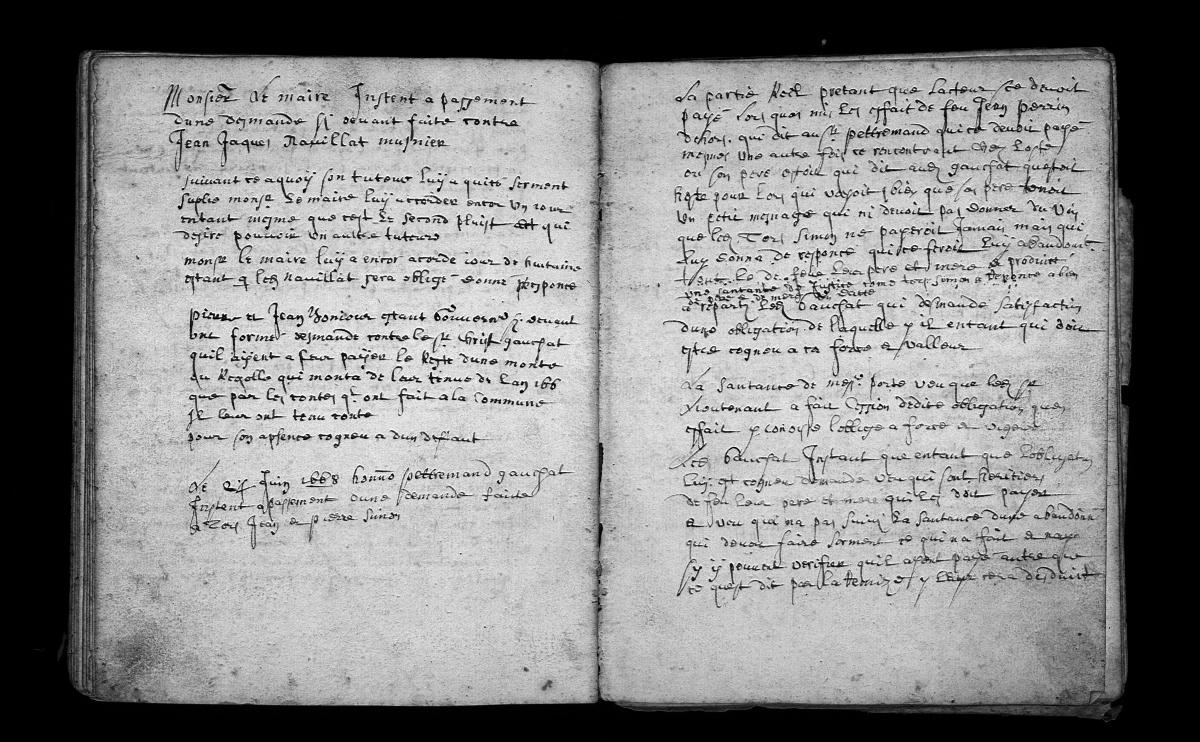 Monsieur Le maire Instent a passement
dune desmande sy devant faite contre
Jean Jaques Navillat musnier
suivant ce aquoy son tuteur luy a quité serment
suplie monsr Le maire luy accorder encor un jour
entant mesme que cest le second pluist qui
desire pouvoir un aultre tuteur
monsr le maire luy a encor acordé jour de huictaine
estant q les Navillat sera obligé donné responce
pierre et Jean Bonjour estant gouverneur sy devant
ont formé desmande contre le sr Christ gauchat
quil ayent a leur payer le Reste dune monte
du Regolle qui monta de leur tenue de Lan 166
que par les contes qt ont fait a la Commune
Il leur ont tenu conte
pour son apsence cogneu a dun deffaut
Le Juin 1668 honno pettremand gauchat
Instent a passement dune demande faite
a Tors Jean et pierre Simon
La partie Reel pretant que Lacteur ce devoit
payé Lors quon mis les effait de feu Jean perrin
dehors. qui dit au sr pettremand quice devoit payé
mesmes une autre fois ce rencontrant chez
ou son pere estoit qui dit avec gauchat questoit
hoste pour Lors qui voyoit bien que son pere tenoit
un petit mesnage qui ni devoit pas donner du vin
que les Tors Simon ne payeroit Jamais mais qui
luy donna de responce quice feroit Luy abandonner
Le de feu Leur pere et mere produit
une santance de Justice come tors simon Responce a bien
de pere et de mere datte
a reparty Led. gauchat qui desmande satisfaction
dune obligation de laquelle y il entant qui doit
estre cogneu a ca force et valleur
La santance de mesr. porte veu que led sr
Lieutenant a fait cession dédite obligation quen
effait y conoisse lobligé a force et vigeur
Led gauchat Instant que entant que Lobligation
luy est cogneu demande veu qui sont heritiers
de feu leur pere et mere qui les doit payer
et veu qui na pas suivy La santance dune abandonn
qui devoit faire serment ce qui na fait et
sy y peuvent verifier quil ayent payé autre que
ce quest dit par La y leur sera desduit